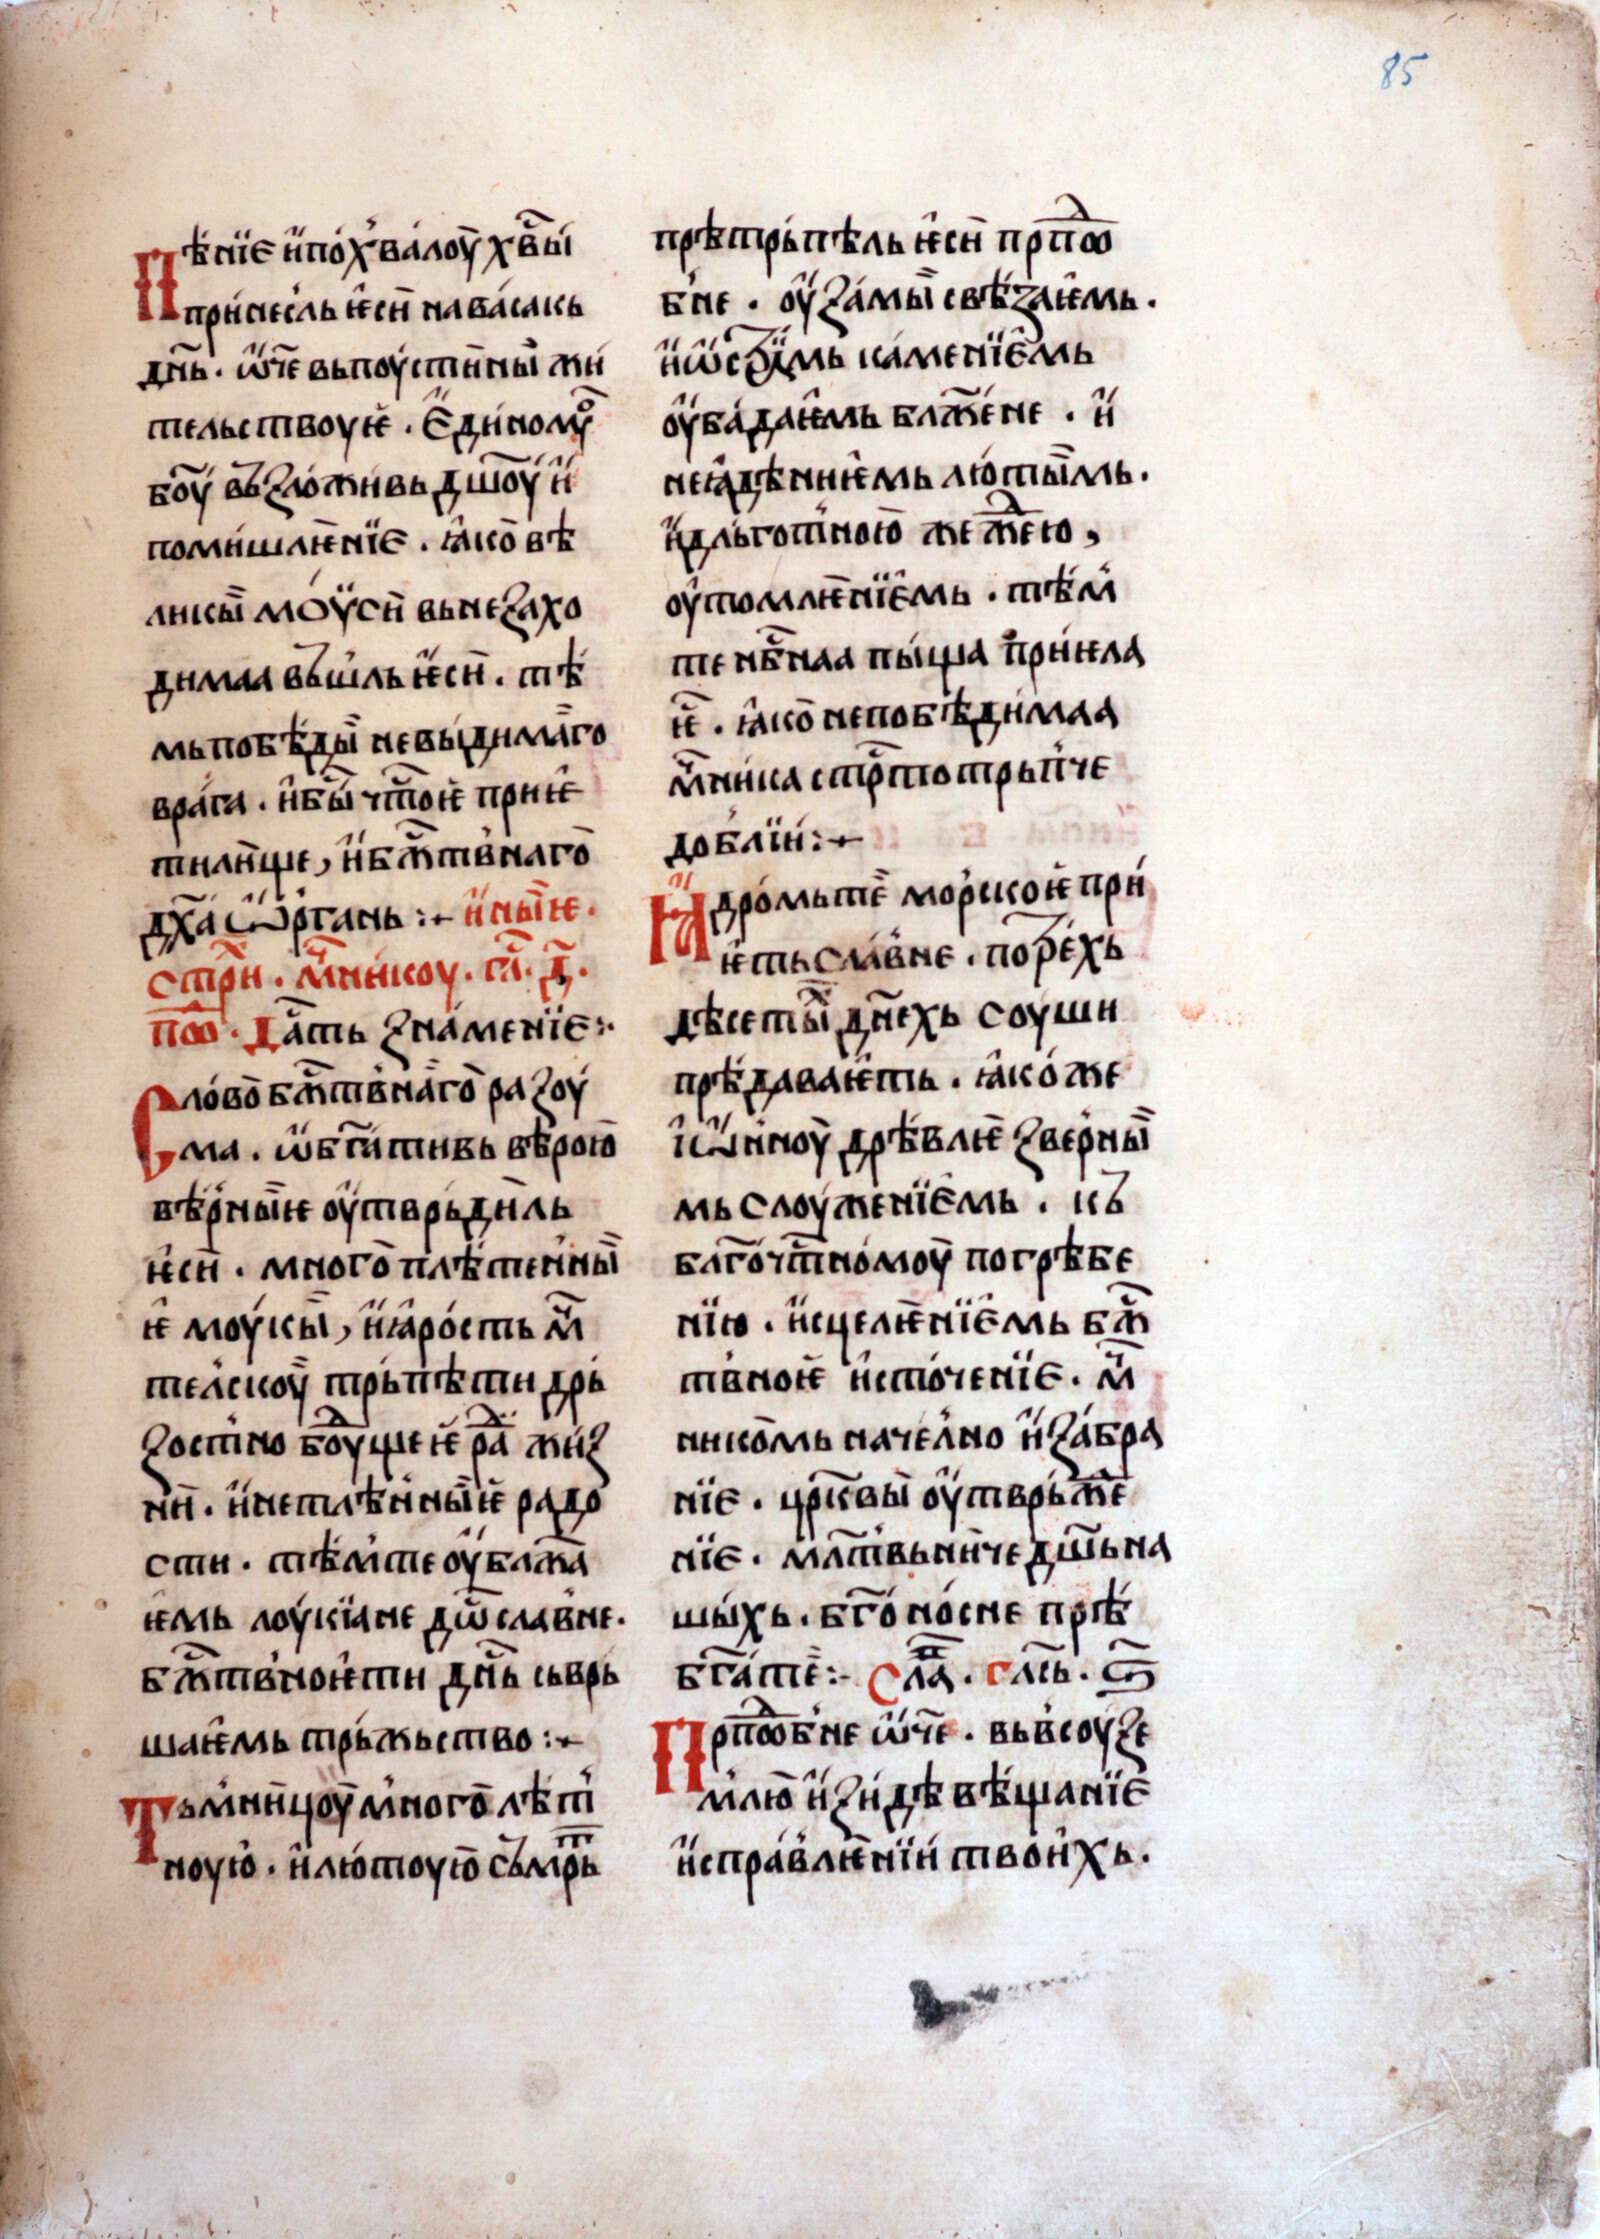 85
Пѣнїе и҆ похвалоу хв҃ы
принесль ѥ҆си на васакь
дн҃ь. ѡ҆ч҃е вь поустины жи
тельствоуѥ. Е҆диномоу
бо҃у вь҆зложивь дш҃оу и҆
помишлѥнїе. ꙗ҆ко вѣ
ликы моѵси вь незахо
димаа вьшль ѥ҆си. тѣ
мь побѣды невыдимаго
врага. и҆ бы҃ чт҃оѥ приѥ
тилище, и҆ бж҃твнаго
дх҃а ѡ҆рганъ :⁓ и҆ ныѥ.
стр҃и. мч҃никоу. гл҃. д҃.
поⷣ. Дасть знаменїе :·
Слово бж҃твнаго разоу
ма. ѡ҆бг҃ативь вѣрою
вѣрныѥ оу҆тврьдиль
ѥ҆си. много плѣтенны
ѥ моукы, и҆ ꙗ҆рость мч҃
телскоу трьпѣти дрь
зостно боудⷣущеѥ раⷣ жиз
ни. и҆ нетлѣнныѥ радо
сти. тѣмте оу҆блж҃а
ѥмь лоукїане дш҃ славне.
бж҃твноѥти дн҃ь сьврь
шаѥмь трьжьство :⁓
Тьмницоу много лѣт
ноую. и҆ лютоую сьмрⷮь
прѣтрьпѣль ѥ҆си прпⷣо
бне. оу҆замы свѣзаѥмь.
и҆ ѡ҆стрⷪимь каменїемь
оу҆бадаѥмь блж҃ене. и҆
неꙗ҆дѣниѥмь лютымь.
и҆ дльготною же жеⷤею,
оу҆томлѥнїемь. тѣм
те нбⷭ҇наа пыща приѥла
ѥ. ꙗ҆ко непобѣдимаа
мч҃ника стрⷭ҇тотрьпче
доблїи :⁓
Ꙗ҆дромь те морскоѥ при
ѥть славне. по трⷯехь
дѣсетыⷯ дн҃ехь соуши
прѣдаваѥть. ꙗ҆коже
і҆ѡ҆нноу дрѣвлѥ зверны
мь слоуженїемь. къ
благочтⷭ҇номоу погрѣбе
нїю. и҆сцелѥнїемь бж҃
твноѥ и҆сточенїе. мч҃
никомь начелно и҆ забра
нїе. цр҃квы оу҆тврьжⷣе
нїе. млт҃вьниче дш҃ь на
шыхь. бг҃оносне прѣ
бг҃ате :⁓ Слаⷡ. глⷭ҇ь. ѕ҃
Прпⷣобне ѡ҆ч҃е. вь всоу зе
млю и҆зиде вѣщанїе
и҆справлѥнїи твоихь.